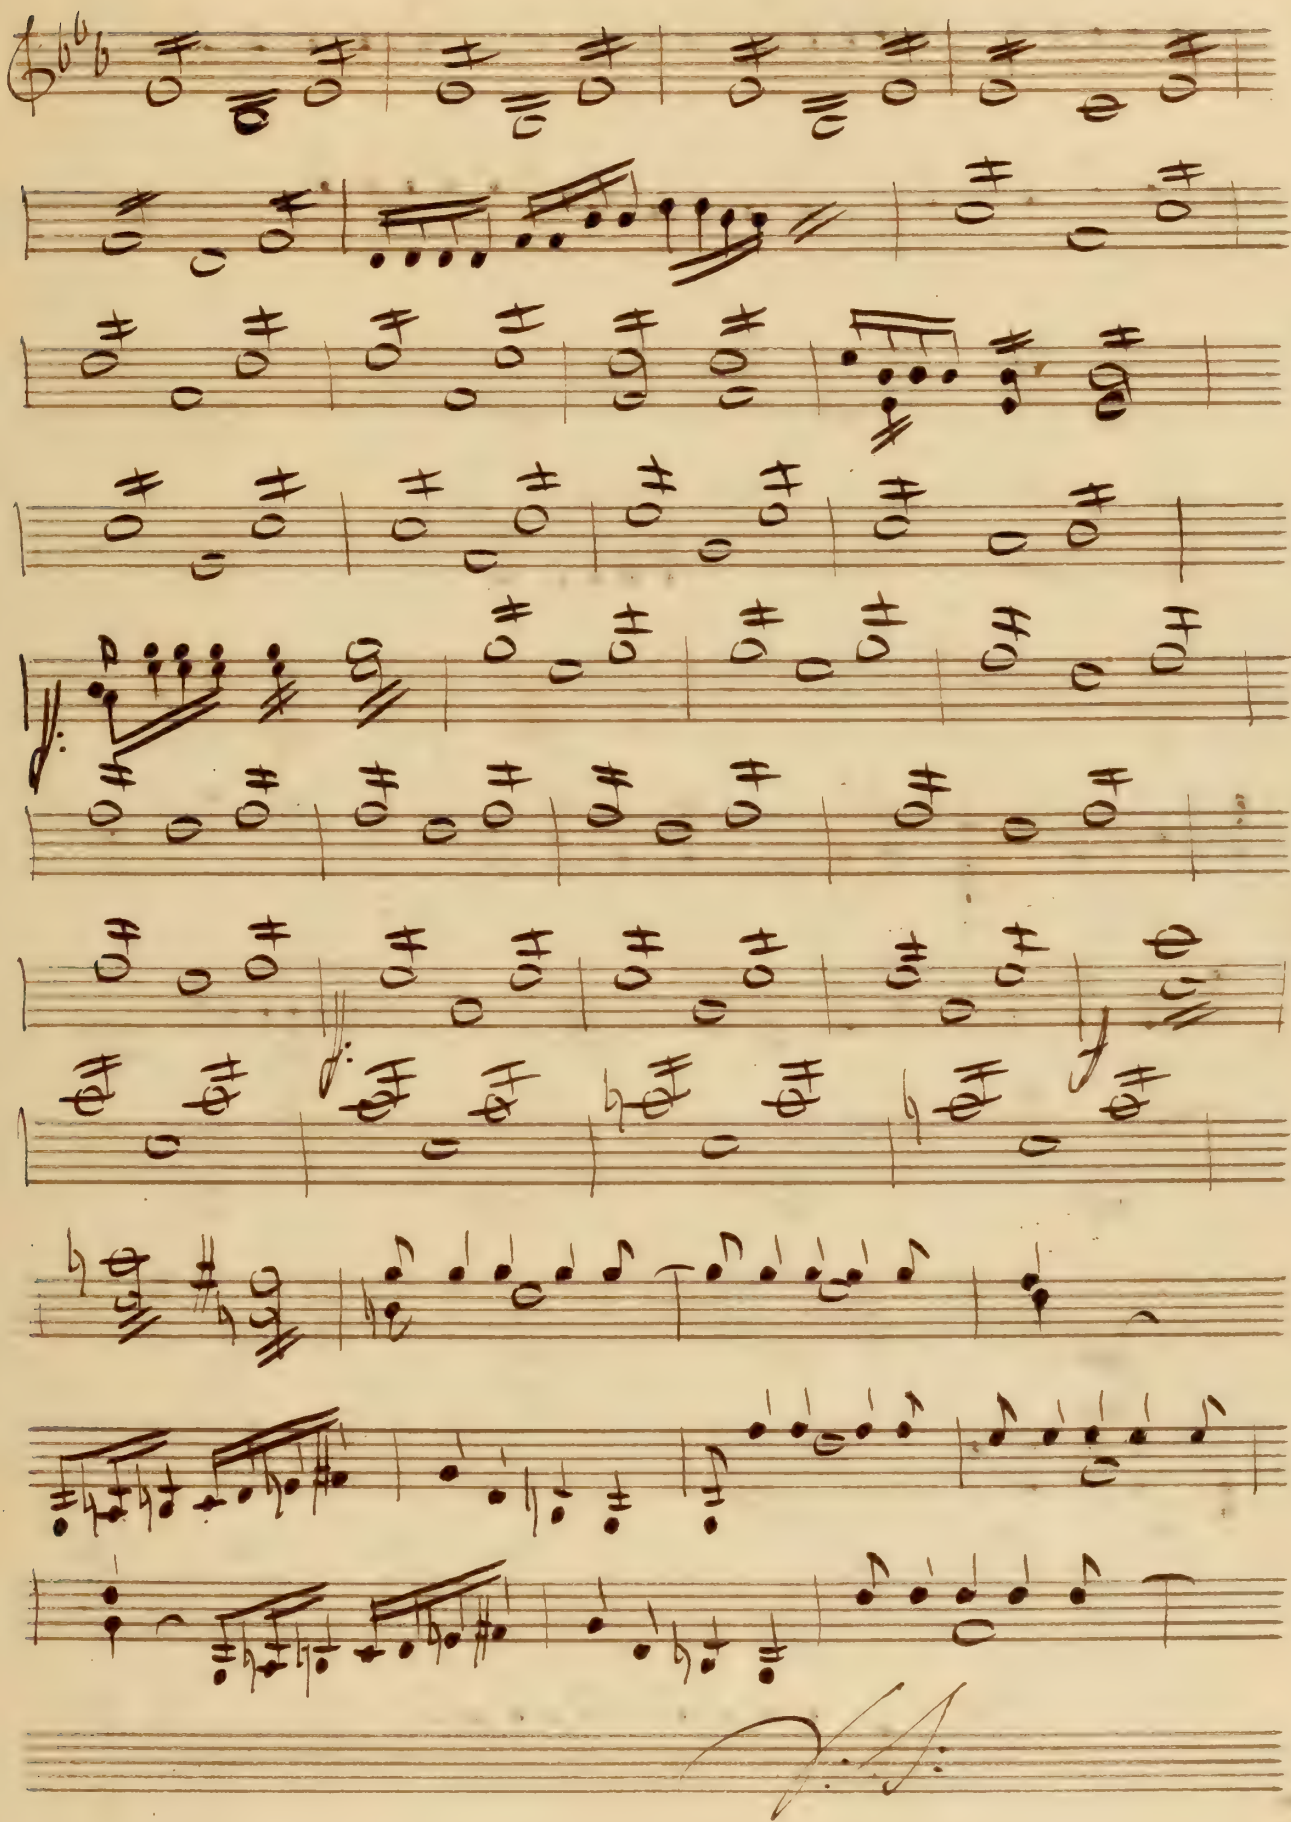 p
f:
f:
f
V: S: